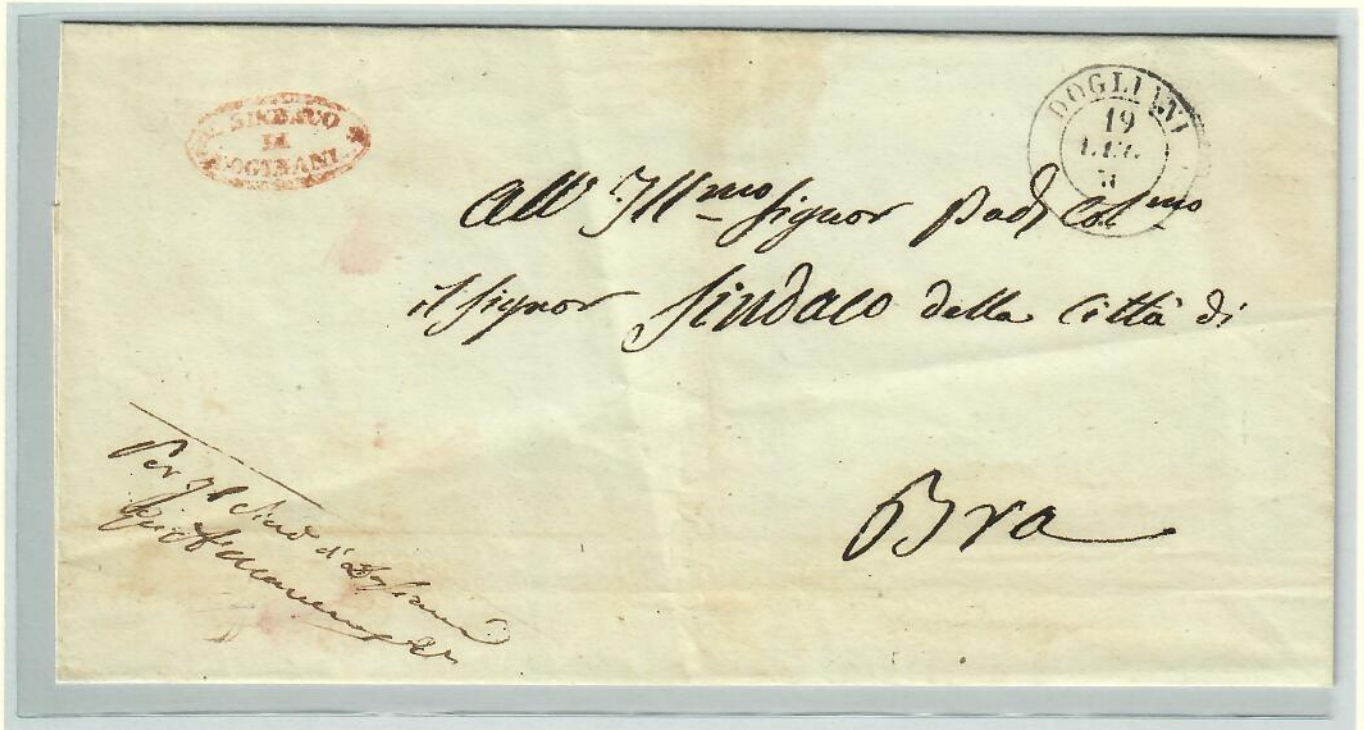 SINDACO
DI
DOGLIANI
DOGLIANI
19
LUG.
51
All' Ill.mo Signor Pad. Col.mo
il Signor Sindaco della Città di
Bra
Per il Sind.o di Dogliani